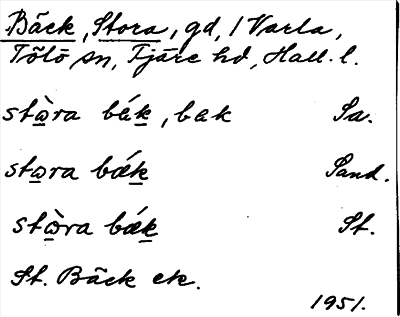 Bäck, Stora, gd, 1 Varla,
Tölö sn, Fjäre hd, Hall. l.
stɷ̀ra bák, bak Sa.
stɷra bǽk Sand.
stɷ̀ra bǽk St.
St. Bäck ek.
1951.